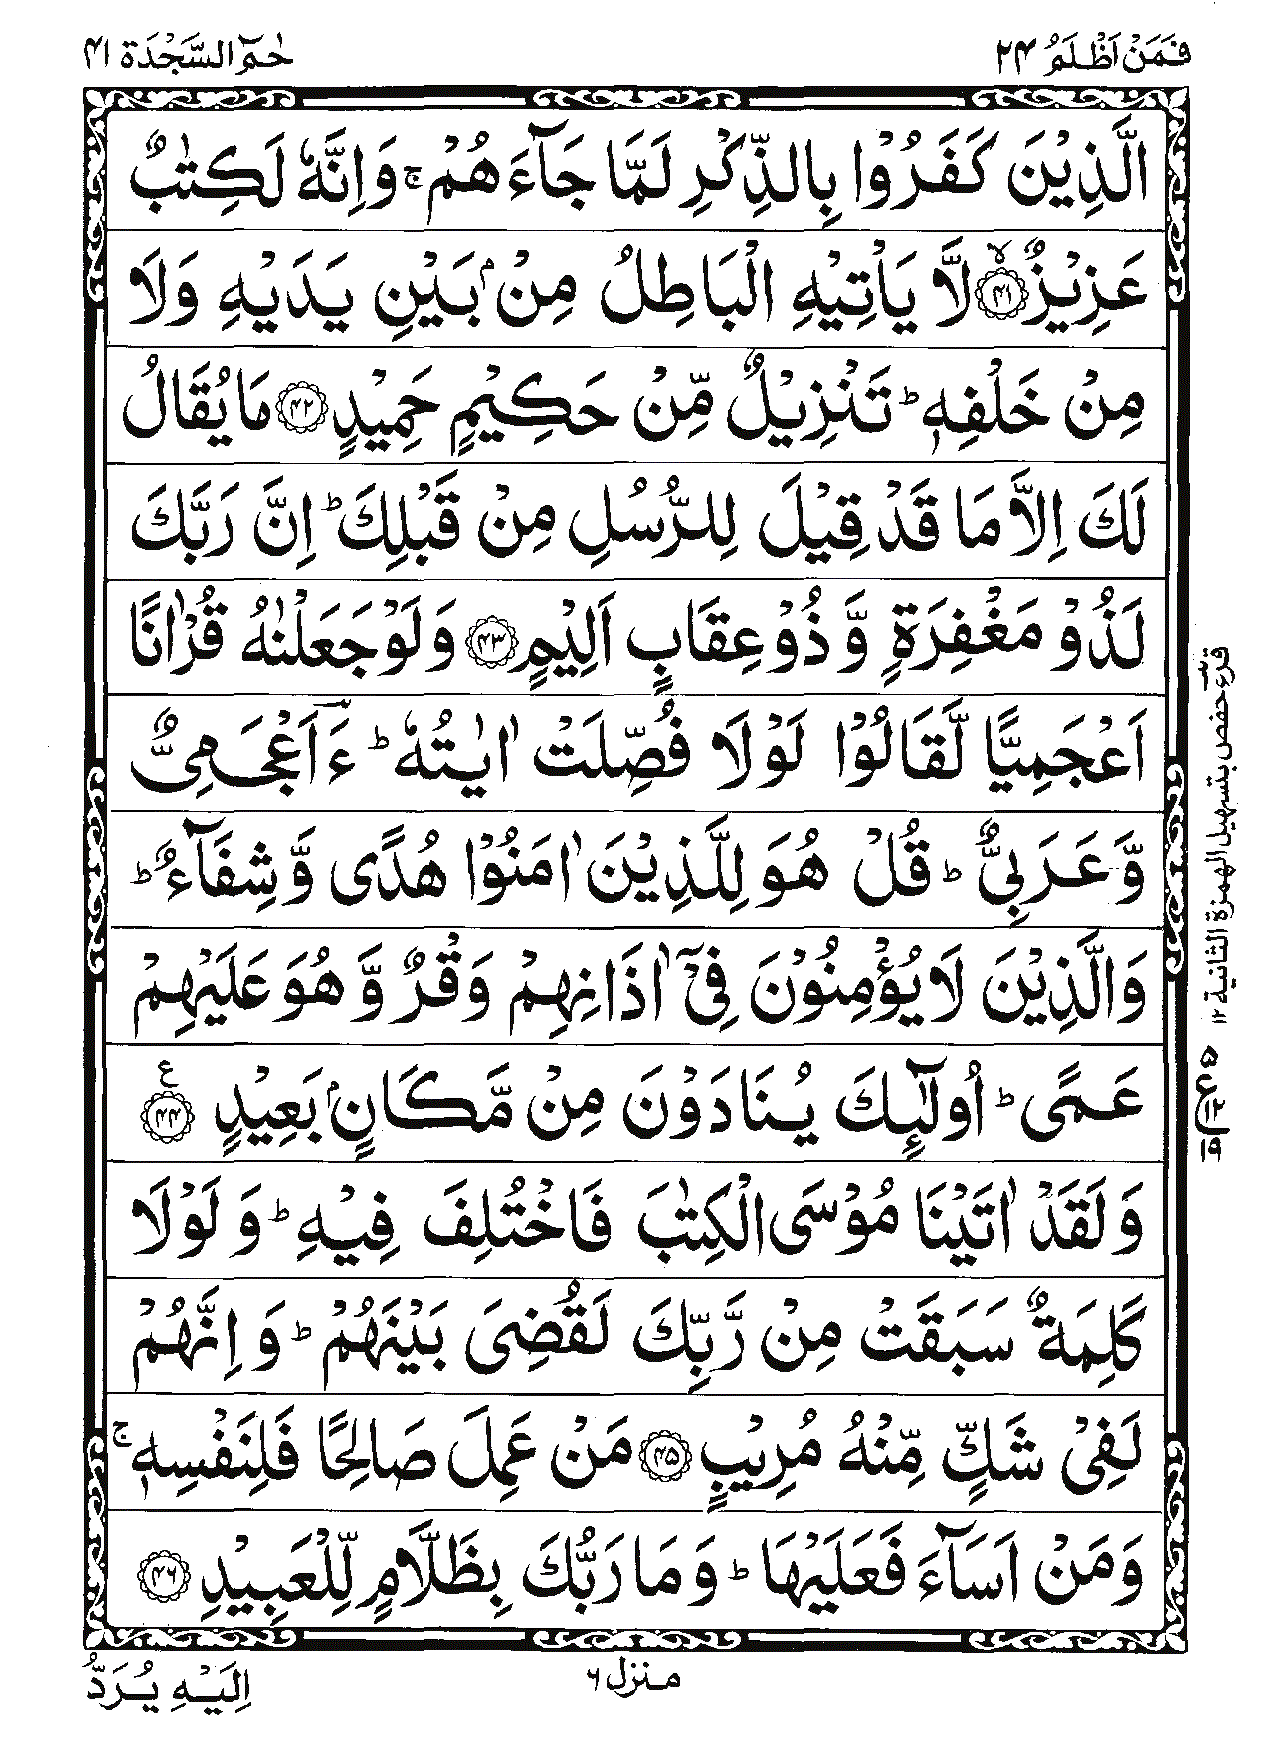 فَمَنْ اَظْلَمُ ۲۴
حٰمٓ السَّجْدَة ۴۱
الَّذِيْنَ كَفَرُوْا بِالذِّكْرِ لَمَّا جَآءَهُمْ ۚ وَاِنَّهٗ لَكِتٰبٌ
عَزِيْزٌ ﴿۴۱﴾ۙ لَّا يَاْتِيْهِ الْبَاطِلُ مِنْۢ بَيْنِ يَدَيْهِ وَلَا
مِنْ خَلْفِهٖ ؕ تَنْزِيْلٌ مِّنْ حَكِيْمٍ حَمِيْدٍ ﴿۴۲﴾ مَا يُقَالُ
لَكَ اِلَّا مَا قَدْ قِيْلَ لِلرُّسُلِ مِنْ قَبْلِكَ ؕ اِنَّ رَبَّكَ
لَذُوْ مَغْفِرَةٍ وَّ ذُوْ عِقَابٍ اَلِيْمٍ ﴿۴۳﴾ وَلَوْ جَعَلْنٰهُ قُرْاٰنًا
اَعْجَمِيًّا لَّقَالُوْا لَوْلَا فُصِّلَتْ اٰيٰتُهٗ ؕ ءَؔاَعْجَمِىٌّ
وَّعَرَبِىٌّ ؕ قُلْ هُوَ لِلَّذِيْنَ اٰمَنُوْا هُدًى وَّشِفَآءٌ ؕ
وَالَّذِيْنَ لَا يُؤْمِنُوْنَ فِىْٓ اٰذَانِهِمْ وَقْرٌ وَّهُوَ عَلَيْهِمْ
عَمًى ؕ اُولٰٓئِكَ يُنَادَوْنَ مِنْ مَّكَانٍۢ بَعِيْدٍ ﴿۴۴﴾ ع
وَلَقَدْ اٰتَيْنَا مُوْسَى الْكِتٰبَ فَاخْتُلِفَ فِيْهِ ؕ وَلَوْلَا
كَلِمَةٌ سَبَقَتْ مِنْ رَّبِّكَ لَقُضِىَ بَيْنَهُمْ ؕ وَاِنَّهُمْ
لَفِىْ شَكٍّ مِّنْهُ مُرِيْبٍ ﴿۴۵﴾ مَنْ عَمِلَ صَالِحًا فَلِنَفْسِهٖ ۚ
وَمَنْ اَسَآءَ فَعَلَيْهَا ؕ وَمَا رَبُّكَ بِظَلَّامٍ لِّلْعَبِيْدِ ﴿۴۶﴾
قرءحفص بتسهيل الهمزة الثانية ۱۲
۵
ع
۱۲
۱۹
منزل ۶
اِلَيْهِ يُرَدُّ